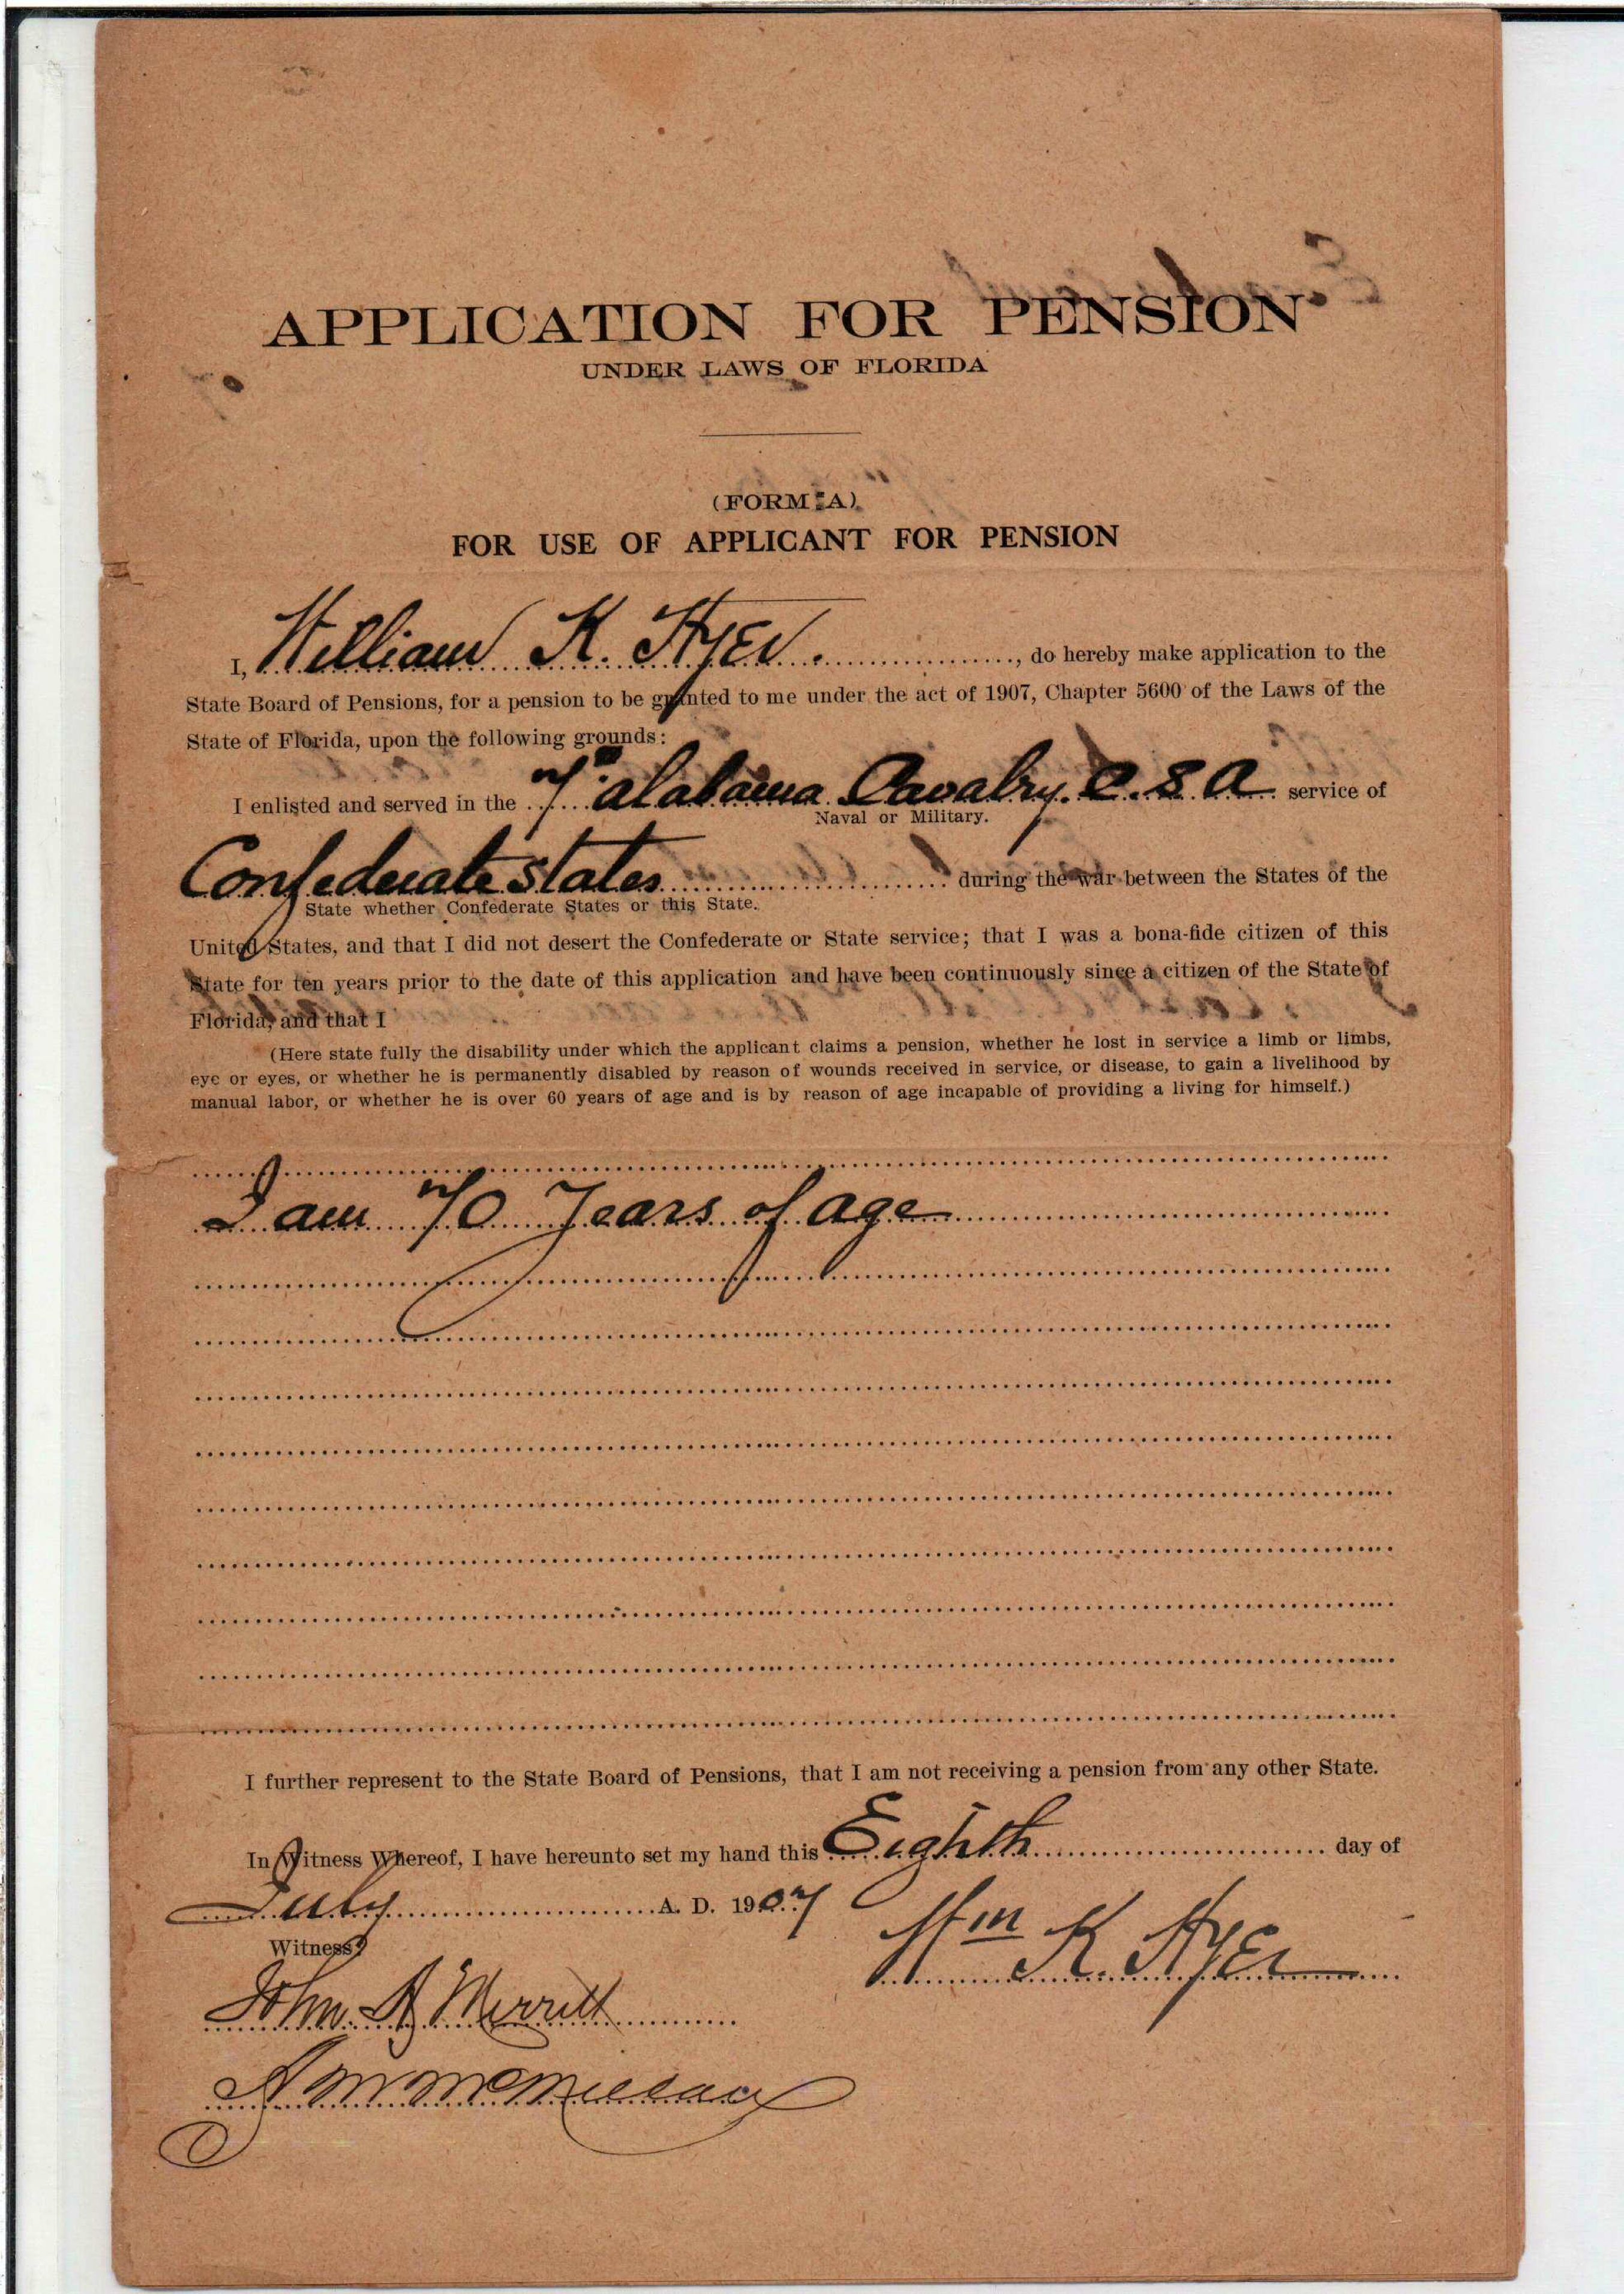 APPLICATION FOR PENSION
UNDER LAWS OF FLORIDA
(FORM A)
FOR USE OF APPLICANT FOR PENSION
I, William K. Hyer. , do hereby make application to the
State Board of Pensions, for a pension to be granted to me under the act of 1907, Chapter 5600 of the Laws of the
State of Florida, upon the following grounds:
I enlisted and served in the 7th alabama Cavalry. C. S. A service of
Naval or Military.
Confederate States during the war between the States of the
State whether Confederate States or this State.
United States, and that I did not desert the Confederate or State service; that I was a bona-fide citizen of this
State for ten years prior to the date of this application and have been continuously since a citizen of the State of
Florida, and that I
(Here state fully the disability under which the applicant claims a pension, whether he lost in service a limb or limbs,
eye or eyes, or whether he is permanently disabled by reason of wounds received in service, or disease, to gain a livelihood by
manual labor, or whether he is over 60 years of age and is by reason of age incapable of providing a living for himself.)
I am 70 Years of age
I further represent to the State Board of Pensions, that I am not receiving a pension from any other State.
In Witness Whereof, I have hereunto set my hand this Eighth day of
July A. D. 1907
Wm K. Hyer
Witness:
John. A Merritt
A M McMillan